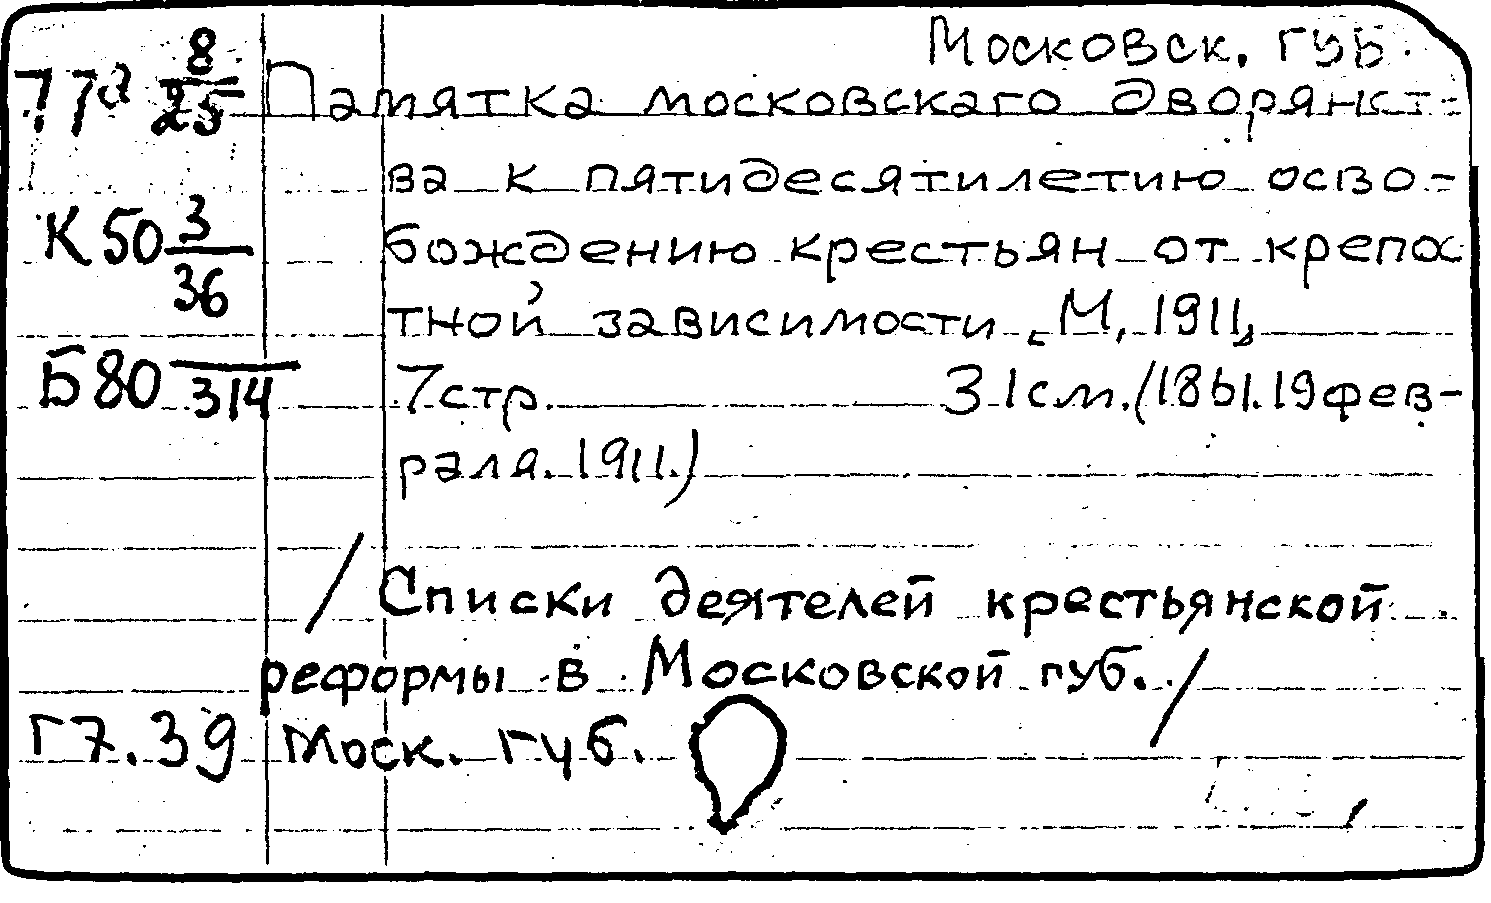 Московск. губ.
77а 8/25 Памятка московскаго дворянст-
ва к пятидесятилетию осво-
К50 3/36 бождению крестьян от крепос
тной зависимости, М, 1911,
Б80 /314 7стр. 31см. (1861. 19 фев-
раля. 1911.)
/ Списки деятелей крестьянской
реформы в Московской губ. /
Г7.39 Моск. губ.